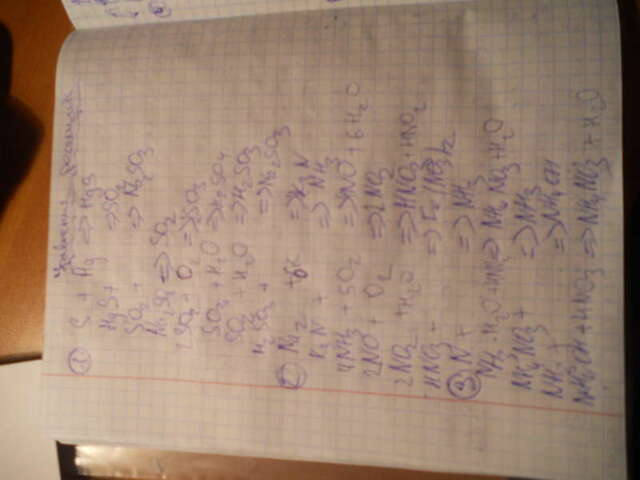 Уравнение реакций
① S + Hg => HgS
HgS + => SO
SO₂ + => Na₂SO₃
Na₂S + => SO₂
2SO₂ + O₂ => 2SO₃
SO₃ + H₂O => H₂SO₄
SO₂ + H₂O => H₂SO₃
H₂SO₃ + => Na₂SO₃
② N₂ + 6K => K₃N
K₃N + => NH₃
4NH₃ + 5O₂ => NO + 6H₂O
2NO + O₂ => 2NO₂
2NO₂ + H₂O => HNO₃ + HNO₂
4HNO₃ + => (NO₃)₂
③ N + => NH₃
NH₃ · H₂O + => NH₄NO₃ + H₂O
NH₄NO₃ + => NH₃
NH₃ + => NH₄OH
NH₄OH + HNO₃ => NH₄NO₃ + H₂O